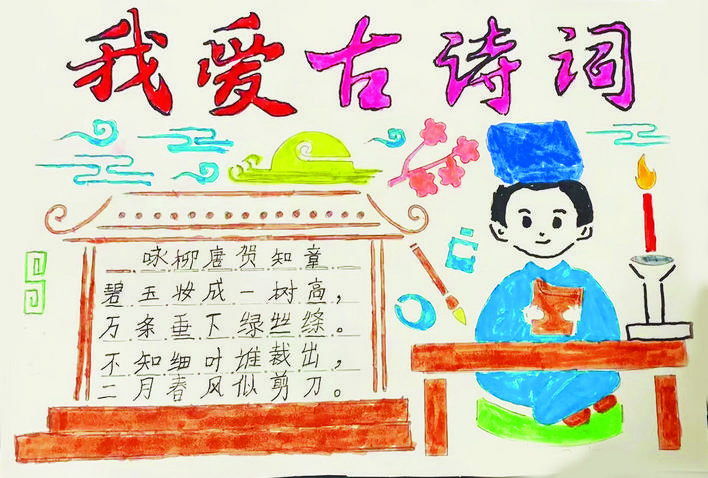 我爱古诗词
咏柳唐贺知章
碧玉妆成一树高，
万条垂下绿丝绦。
不知细叶谁裁出，
二月春风似剪刀。